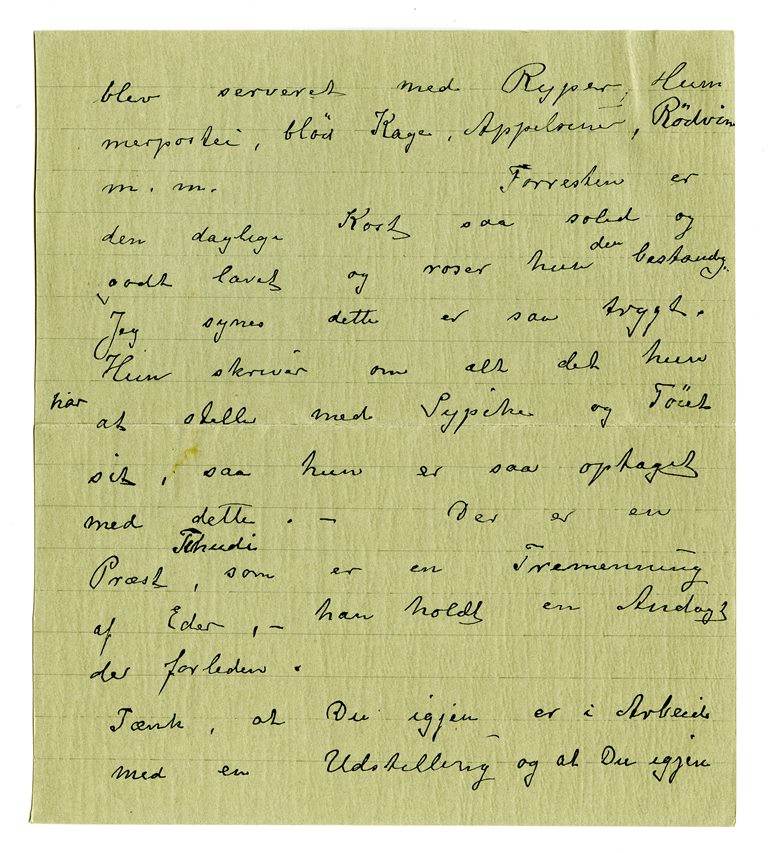 blev serveret med Ryper, Hum
merpostei, blød Kage, Appelsiner, Rødvin
m. m. Forresten er
den daglige Kost saa solid og
godt lavet og roser hun den bestandig.
Jeg synes dette er saa trygt.
Hun skriver om alt det hun
har at stelle med Sypike og Töiet
sit, saa hun er saa optaget
med dette. – Der er en
Præst Tschudi, som er en Tremenning
af Eder, – han holdt en Andagt
der forleden.
Tænk, at Du igjen er i Arbeide
med en Udstilling og at Du igjen